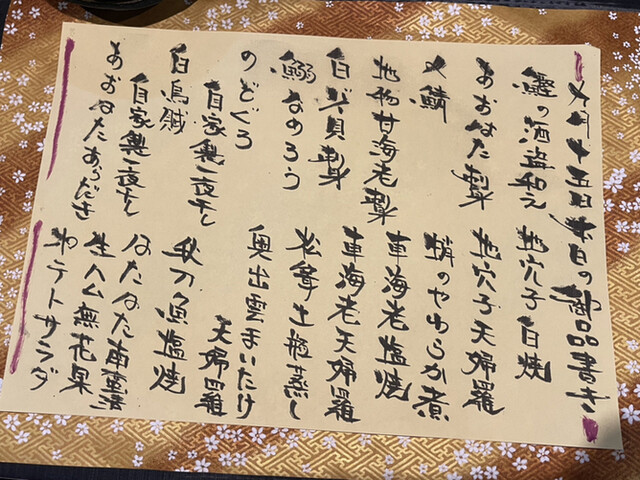 九月十五日 本日の御品書き
鰹の酒盗和え
あおはた刺
〆鯖
地物甘海老刺
白バイ貝刺
鰯なめろう
のどぐろ
自家製一夜干し
白烏賊
自家製一夜干し
あおはたあらだき
地穴子白焼
地穴子天婦羅
蛸のやわらか煮
車海老塩焼
車海老天婦羅
松茸土瓶蒸し
奥出雲まいたけ
天婦羅
秋刀魚塩焼
はたはた南蛮漬
生ハム無花果
ポテトサラダ